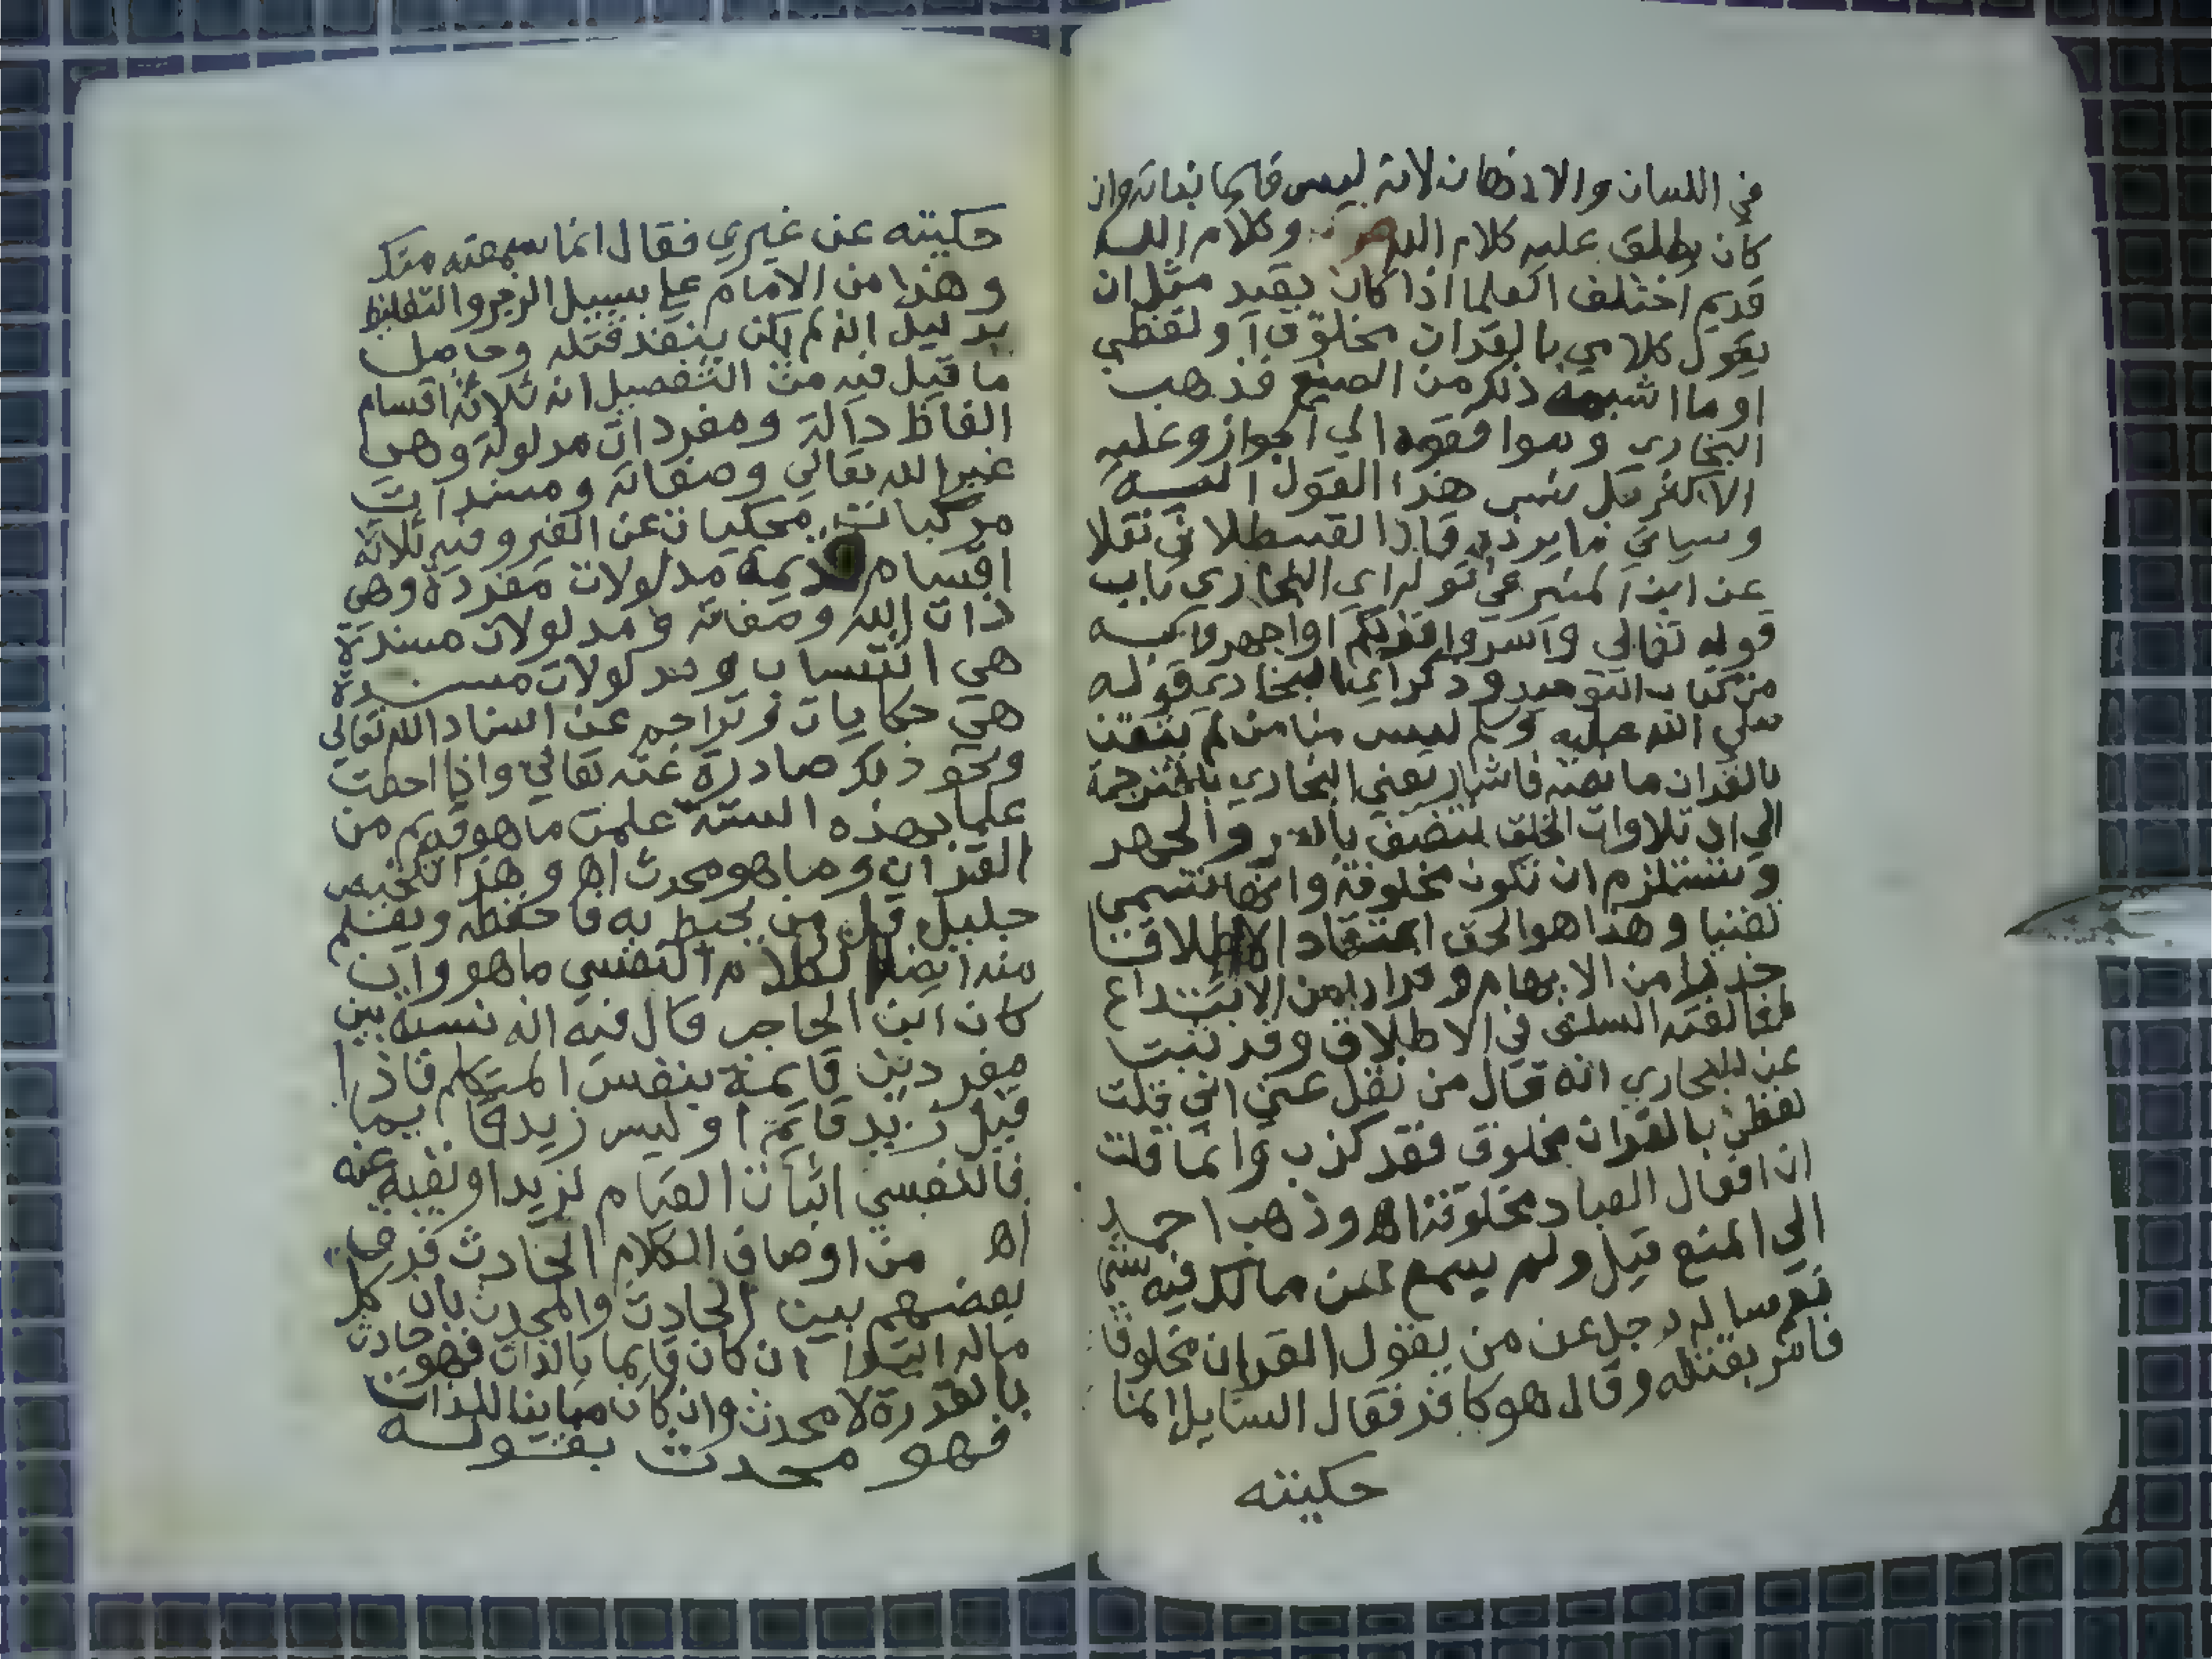 في اللسان والاذهان لانه ليس قائما بذاته وان
كان يطلق عليه كلام الله وكلام الله
قديم اختلف العلما اذا كان بقيد مثل ان
يقول كلامي بالقران مخلوق او لفظي
او ما اشبه ذلك من الصيغ فذهب
البخاري وموافقوه الي الجواز وعليه
الاكثر بل نسب هذا القول اليه
وسياتي ما يرده قال القسطلاني نقلا
عن ابن المنير في قوله اي البخاري باب
قوله تعالي واسروا قولكم او اجهروا به
من كتاب التوحيد وذكر ايضا البخاري قوله
صلي الله عليه وسلم ليس منا من لم يتغن
بالقران ما نصه فاشار يعني البخاري بالترجمة
الي ان تلاوات الخلق تتصف بالسر والجهر
وتستلزم ان تكون مخلوقة وانها تسمي
تغنيا وهذا هو الحق اعتقادا لا اطلاقا
حذرا من الايهام وفرارا من الابتداع
لمخالفة السلف في الاطلاق وقد ثبت
عن البخاري انه قال من نقل عني اني قلت
لفظي بالقران مخلوق فقد كذب وانما قلت
ان افعال العباد مخلوقة اهـ وذهب احمد
الي المنع قيل ولم يسمع عن مالك فيه شي
نعم ساله رجل عن من يقول القران مخلوق
فامر بقتله وقال هو كافر فقال السايل انما
حكيته
حكيته عن غيري فقال انما سمعته منك
وهذا من الامام علي سبيل الزجر والتغليظ
بدليل انه لم يكن ينفذ قتله وحاصل
ما قيل فيه من التفصيل انه ثلاثة اقسام
الفاظ دالة ومفردات مدلولة وهي
غير الله تعالي وصفاته ومسندات
مركبات محكيات عن الغير وفيه ثلاثة
اقسام قديمة مدلولات مفردة وهي
ذات الله وصفاته ومدلولات مسندة
هي انتساب ومدلولات مسندة
هي حكايات وتراجم عن اسناد الله تعالي
ونحو ذلك صادرة عنه تعالي واذا احطت
علما بهذه الستة علمت ما هو قديم من
القران وما هو محدث اهـ وهذا التلخيص
جليل قل من يحيط به فاحفظه ويفهم
منه ايضا الكلام النفسي ما هو وان
كان ابن الحاجب قال فيه انه نسبة بين
مفردين قايمة بنفس المتكلم فاذا
قيل زيد قايم او ليس زيد قايما
فالنفسي اثبات القيام لزيد او نفيه عنه
اهـ من اوصاف الكلام الحادث فرق
بعضهم بين الحادث والمحدث بان كل
ماله ابتدا ان كان قايما بالذات فهو حادث
بالقدرة لا محدث وان كان مباينا للذات
فهو محدث بقوله